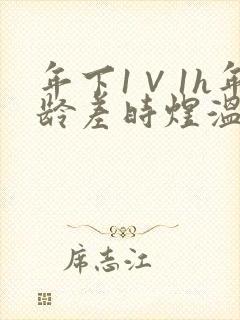 年下1V1h年
龄差时煜温
席志江